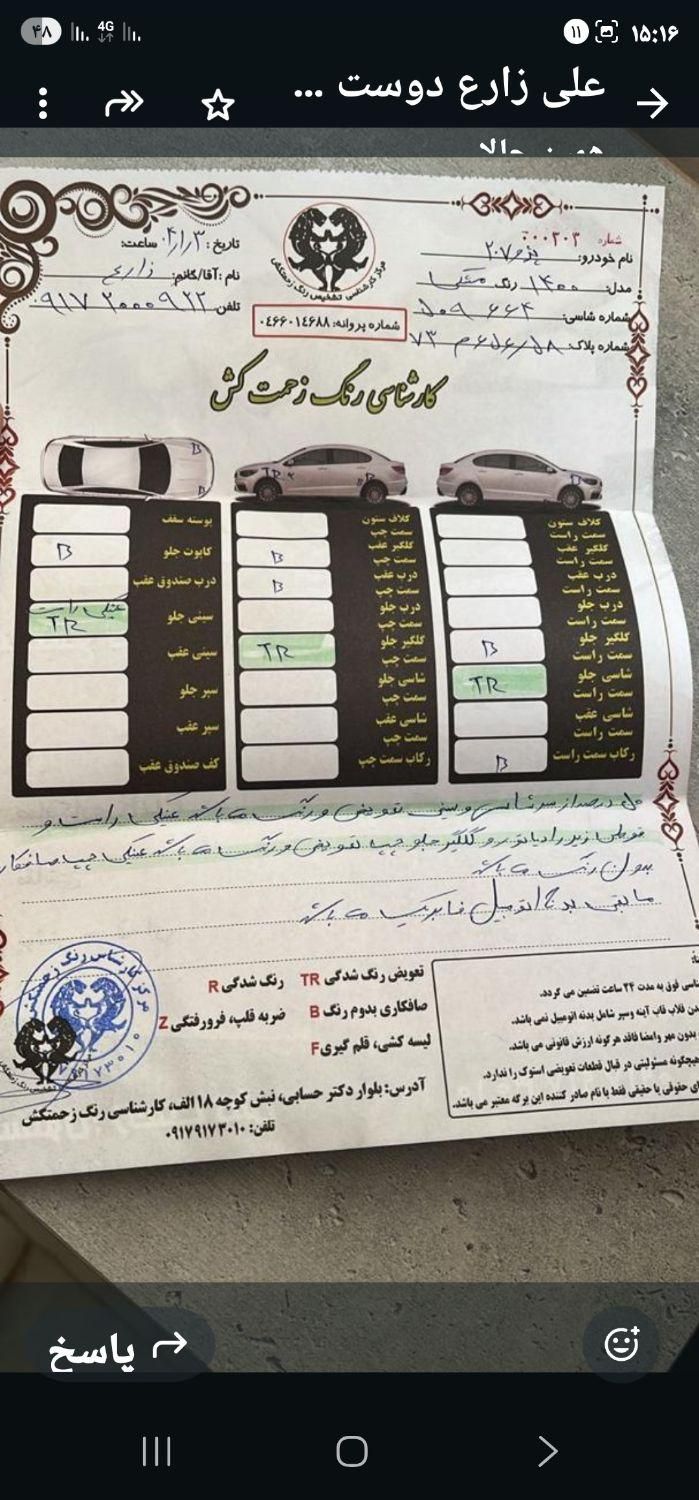 ۴۸
4G
۱۱
۱۵:۱۶
علی زارع دوست ...
شماره ۰۰۰۳۰۳
نام خودرو: پژو ۲۰۷
مدل: ۱۴۰۰ رنگ مشکی
شماره شاسی: ۵۰۹۶۶۴
شماره پلاک:
شماره پروانه: ۰۴۶۶۰۱۴۶۸۸
مرکز کارشناسی تشخیص رنگ زحمتکش
تاریخ: ۳/۱/۴ ساعت:
نام: آقا/خانم: زارع
تلفن: ۰۹۱۷ ۲۰۰۰۹۲۲
کارشناسی رنگ زحمت کش
B
B
TR
B
کلاف ستون سمت راست
گلگیر عقب سمت راست
درب عقب سمت راست
درب جلو سمت راست
گلگیر جلو سمت راست B
شاسی جلو سمت راست TR
شاسی عقب سمت راست
رکاب سمت راست B
کلاف ستون سمت چپ
گلگیر عقب سمت چپ B
درب عقب سمت چپ B
درب جلو سمت چپ
گلگیر جلو سمت چپ TR
شاسی جلو سمت چپ
شاسی عقب سمت چپ
رکاب سمت چپ
پوسته سقف
کاپوت جلو B
درب صندوق عقب
سینی جلو عینکی راست TR
سینی عقب
سپر جلو
سپر عقب
کف صندوق عقب
درصد از سر شاسی و سینی تعویض و رنگ می باشد عینکی راست و
زیر رادیاتور و گلگیر جلو چپ تعویض و رنگ می باشد عینکی چپ صافکاری
بدون رنگ می باشد
مابقی بدنه اتومبیل فابریک می باشد
مرکز کارشناسی رنگ زحمتکش
تعویض رنگ شدگی TR رنگ شدگی R
صافکاری بدوم رنگ B ضربه قلپ، فرورفتگی Z
لیسه کشی، قلم گیری F
آدرس: بلوار دکتر حسابی، نبش کوچه ۱۸ الف، کارشناسی رنگ زحمتکش
تلفن: ۰۹۱۷۹۱۷۳۰۱۰
فوق به مدت ۲۴ ساعت تضمین می گردد.
قلاب قاب آینه وسپر شامل بدنه اتومبیل نمی باشد.
بدون مهر وامضا فاقد هرگونه ارزش قانونی می باشد.
هیچگونه مسئولیتی در قبال قطعات تعویضی استوک را ندارد.
حقوقی یا حقیقی فقط با نام صادر کننده این برگه معتبر می باشد.
پاسخ